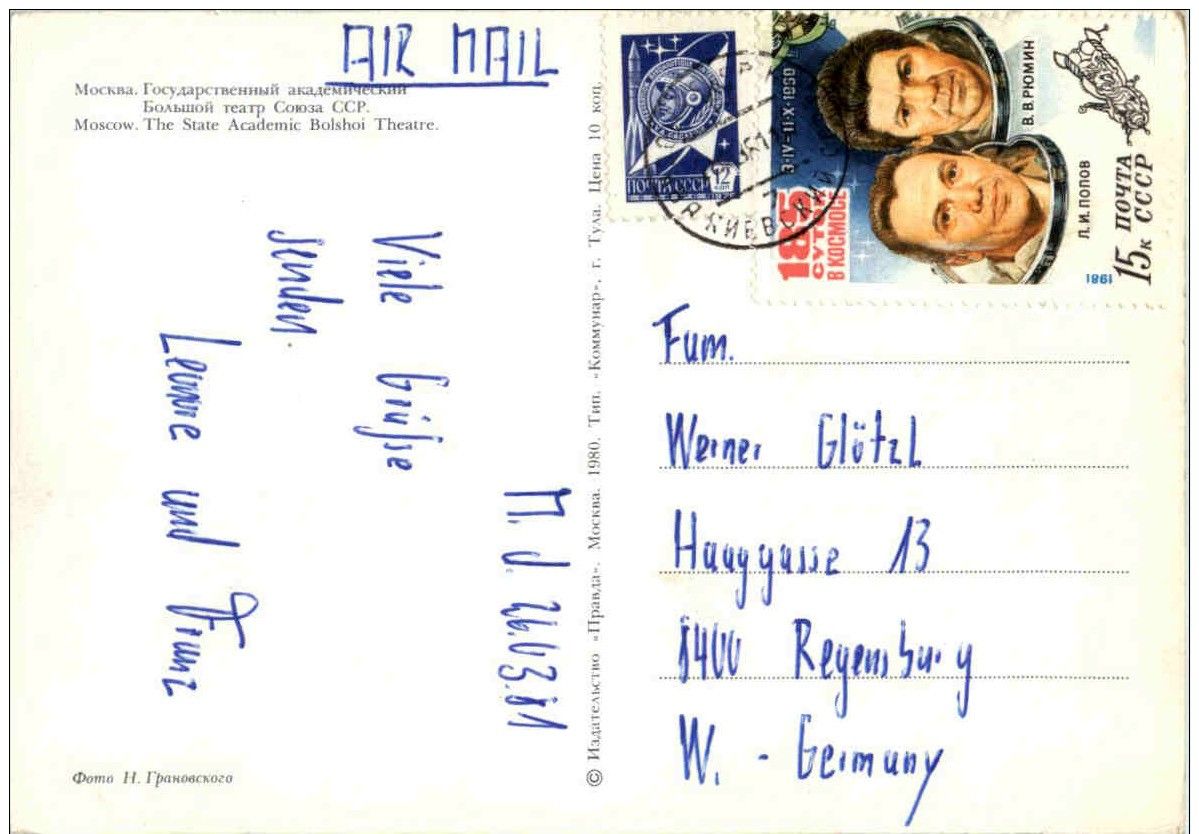 AIR MAIL
Москва. Государственный академический
Большой театр Союза ССР.
Moscow. The State Academic Bolshoi Theatre.
M. d. 26.03.81
Viele Grüsse
senden
und Franz
Фото Н. Грановского
© Издательство «Правда». Москва. 1980. Тип. «Коммунар», г. Тула. Цена 10 коп.
ПОЧТА СССР
12
коп
КИЕВСКИЙ
3·IV–11·X·1980
185
СУТОК
В КОСМОСЕ
В.В.РЮМИН
Л.И.ПОПОВ
15к ПОЧТА
СССР
1981
Fam.
Werner Glötzl
Haaggasse 13
8400 Regensburg
W. - Germany